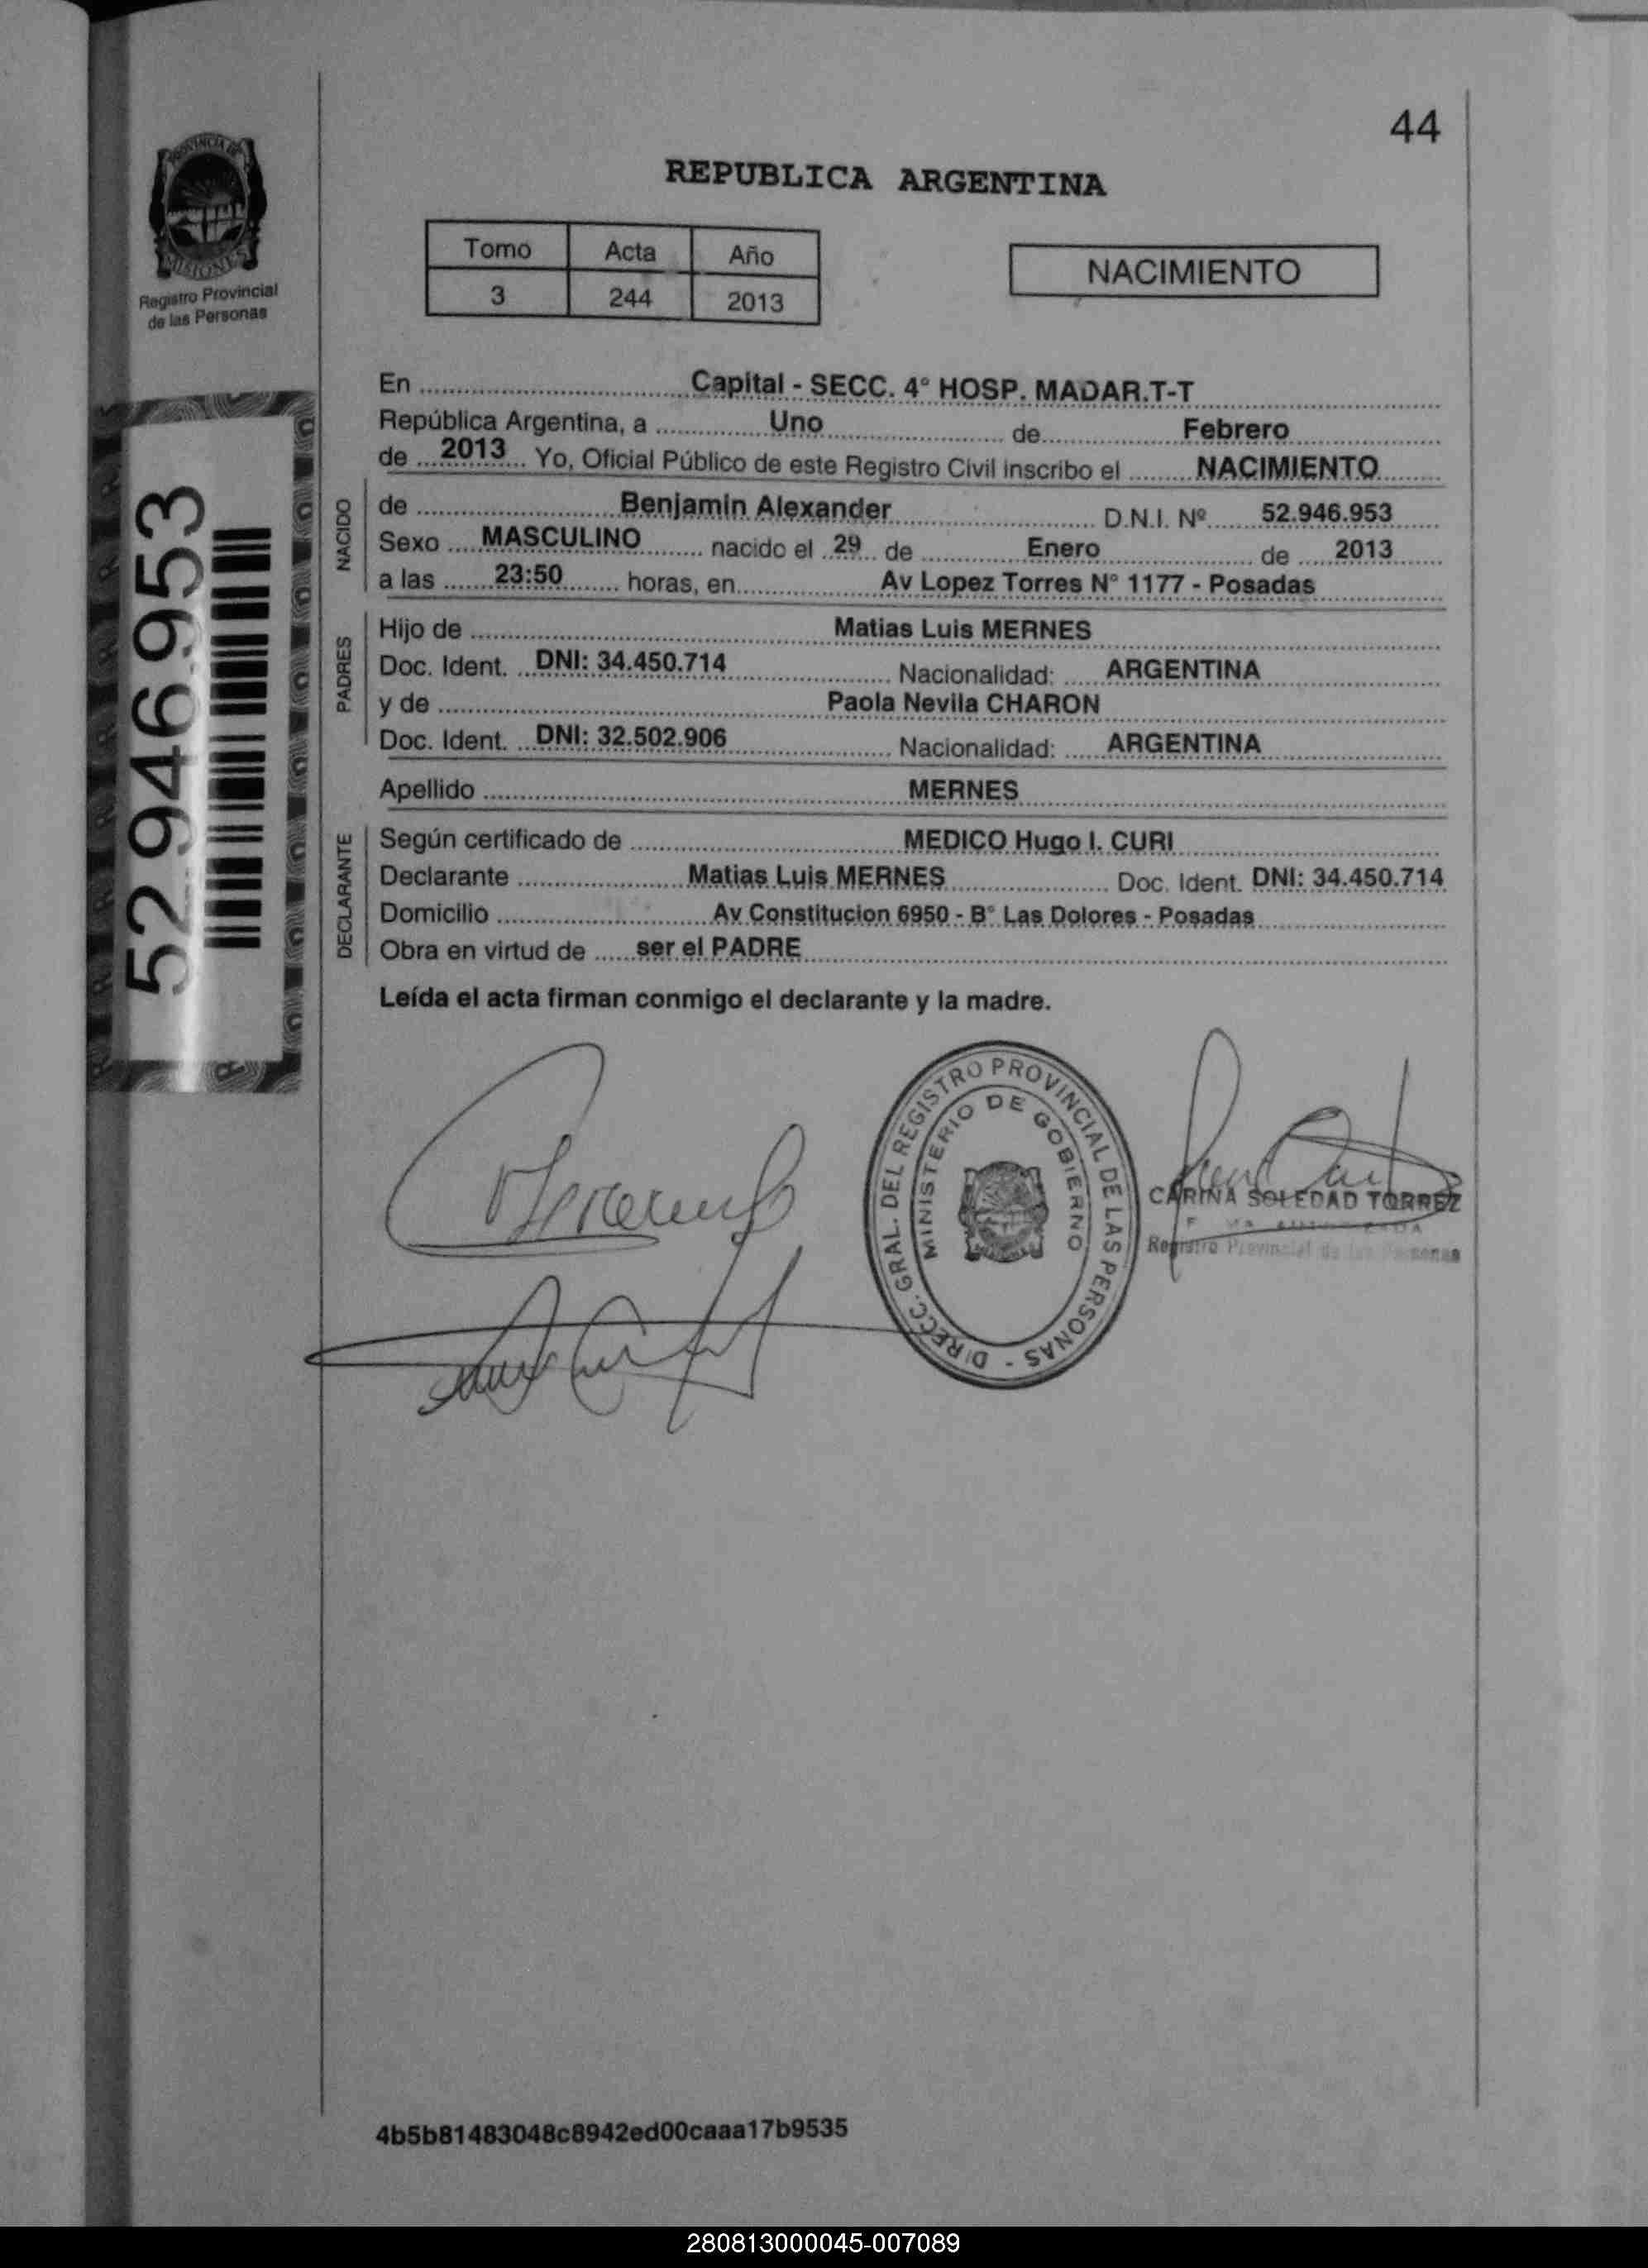 44
PROVINCIA DE
MISIONES
Registro Provincial
de las Personas
REPUBLICA ARGENTINA
Tomo Acta Año
3 244 2013
NACIMIENTO
52946953
En Capital - SECC. 4° HOSP. MADAR.T-T
República Argentina, a Uno de Febrero
de 2013 Yo, Oficial Público de este Registro Civil inscribo el NACIMIENTO
NACIDO
de Benjamin Alexander D.N.I. Nº 52.946.953
Sexo MASCULINO nacido el 29 de Enero de 2013
a las 23:50 horas, en Av Lopez Torres N° 1177 - Posadas
PADRES
Hijo de Matias Luis MERNES
Doc. Ident. DNI: 34.450.714 Nacionalidad: ARGENTINA
y de Paola Nevila CHARON
Doc. Ident. DNI: 32.502.906 Nacionalidad: ARGENTINA
Apellido MERNES
DECLARANTE
Según certificado de MEDICO Hugo I. CURI
Declarante Matias Luis MERNES Doc. Ident. DNI: 34.450.714
Domicilio Av Constitucion 6950 - B° Las Dolores - Posadas
Obra en virtud de ser el PADRE
Leída el acta firman conmigo el declarante y la madre.
DIRECC. GRAL. DEL REGISTRO PROVINCIAL DE LAS PERSONAS -
MINISTERIO DE GOBIERNO
CARINA SOLEDAD TORREZ
Registro Provincial de las Personas
4b5b81483048c8942ed00caaa17b9535
280813000045-007089